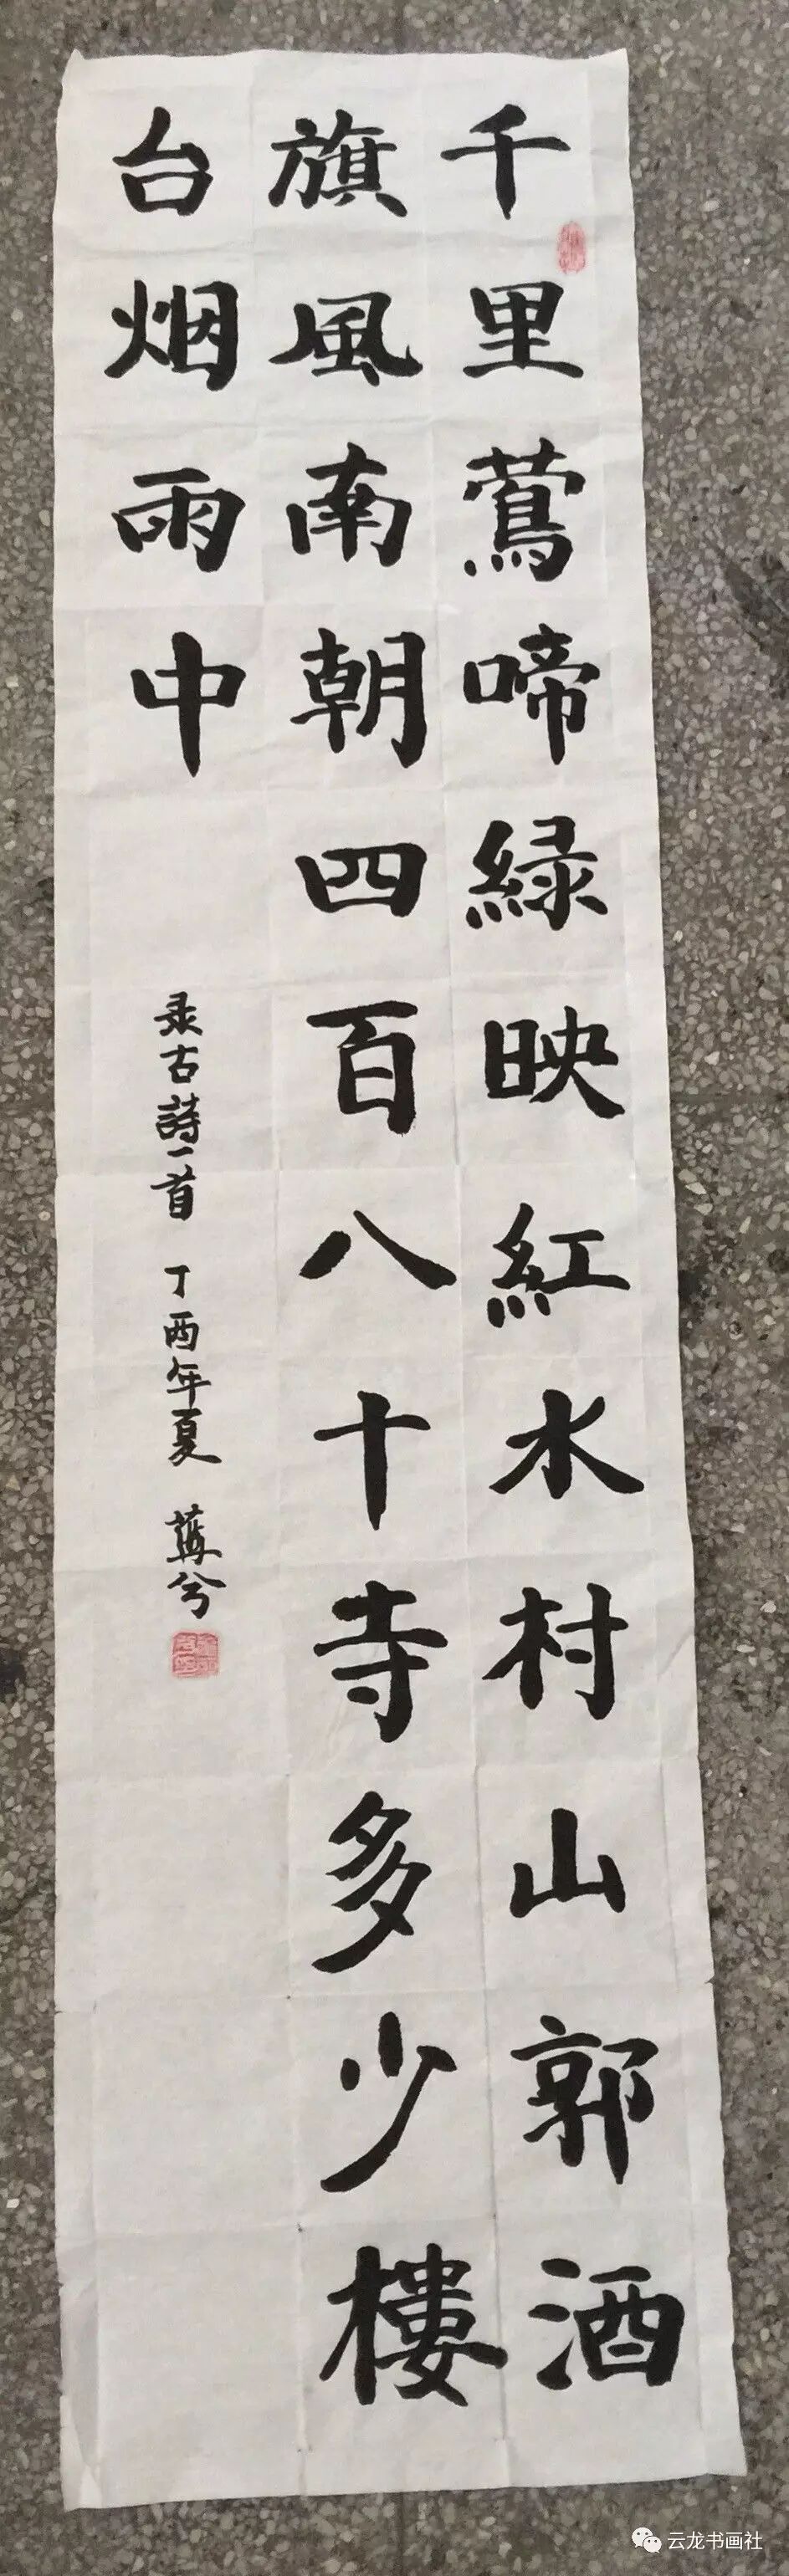 千里鶯啼緑映紅水村山郭酒
旗風南朝四百八十寺多少樓
台烟雨中
录古詩一首 丁酉年夏 蓝兮
云龙书画社